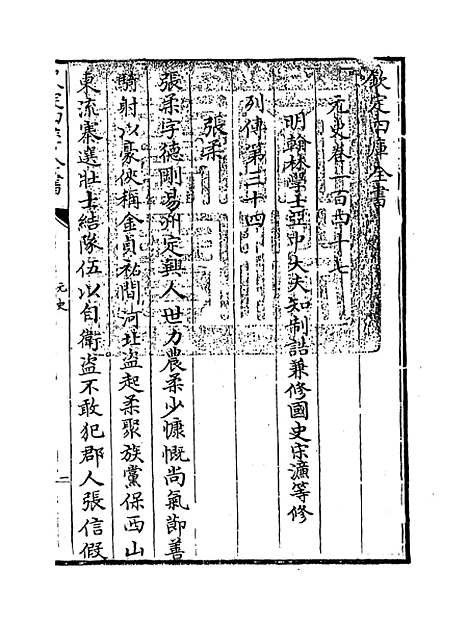 欽定四庫全書
元史卷一百四十七
明翰林學士亞中大夫知制誥兼修國史宋濂等修
列傳第三十四
張柔
張柔字德剛易州定興人世力農柔少慷慨尚氣節善
騎射以豪俠稱金貞祐間河北盜起柔聚族黨保西山
東流寨選壯士結隊伍以自衛盜不敢犯郡人張信假
元史